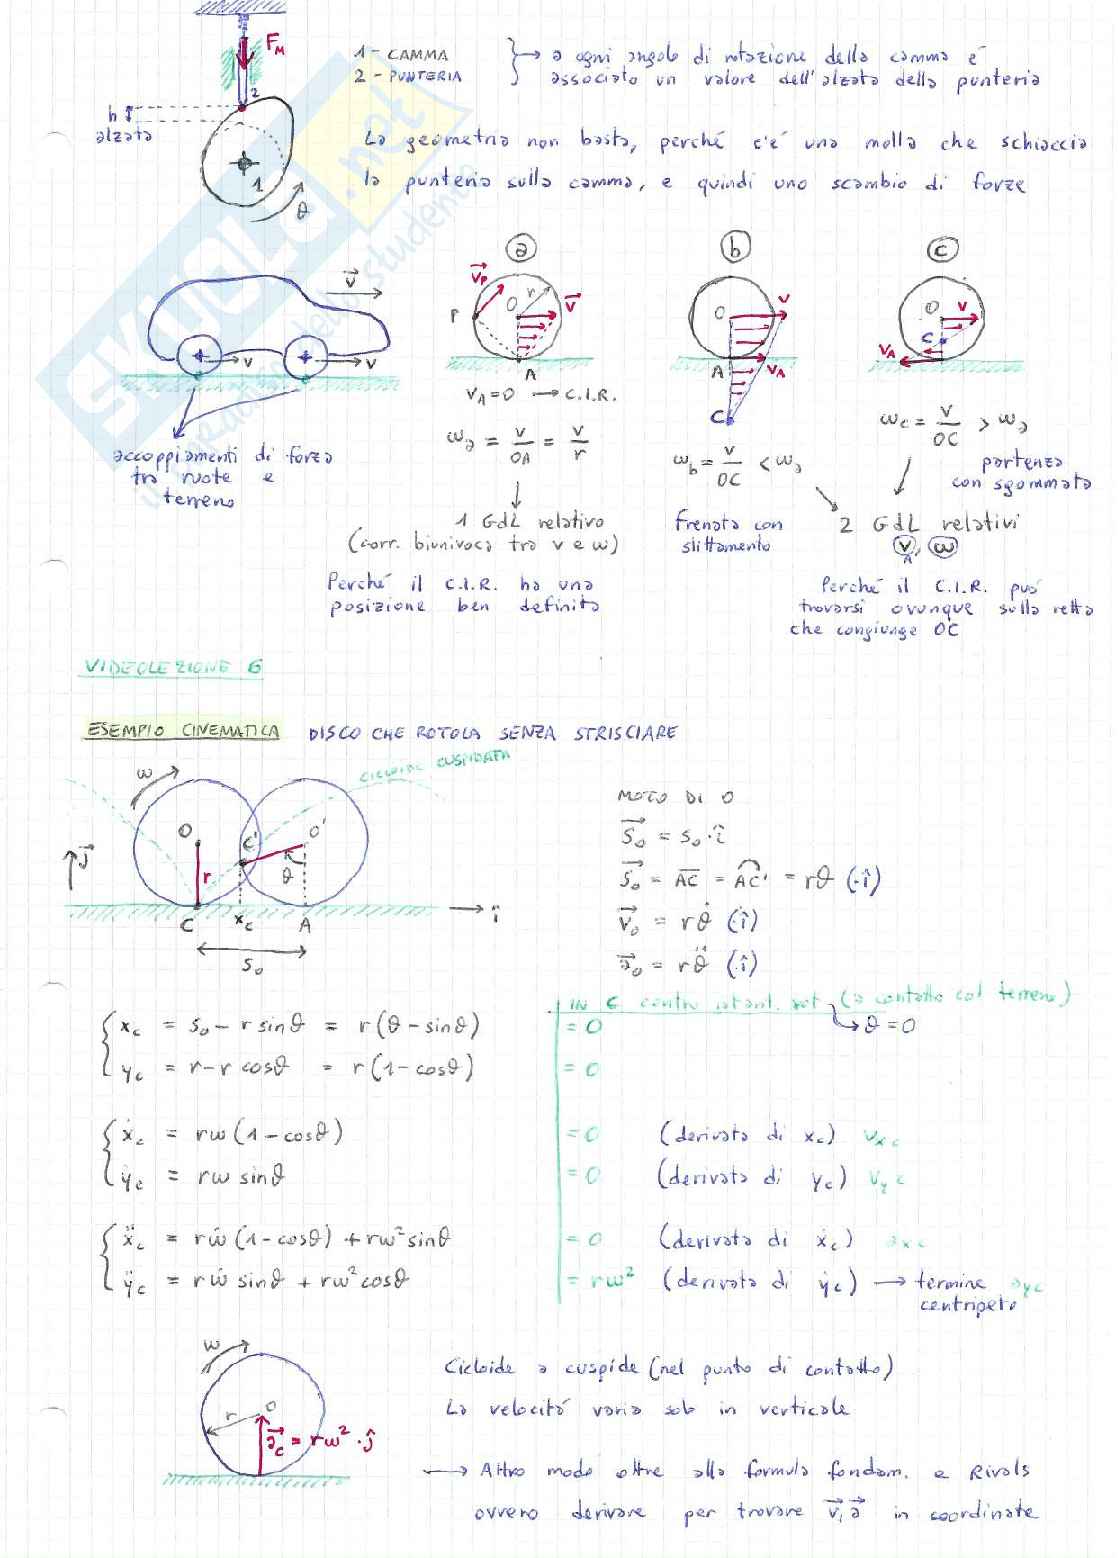 F_M
1 - CAMMA
2 - PUNTERIA
→ a ogni angolo di rotazione della camma è
associato un valore dell'alzata della punteria
2
h
alzata
1
θ
La geometria non basta, perché c'é una molla che schiaccia
la punteria sulla camma, e quindi uno scambio di forze
SKUOLA.net
v
v
v
accoppiamenti di forza
tra ruote e
terreno
a
v_P
r
O
v
P
A
v_A = 0 → C.I.R.
ω_a = v/OA = v/r
1 GdL relativo
(corr. biunivoca tra v e ω)
Perché il C.I.R. ha una
posizione ben definita
b
O
v
A
v_A
C
ω_b = v/OC < ω_a
Frenata con
slittamento
c
O
v
C
v_A
ω_c = v/OC > ω_a
partenza
con sgommata
2 GdL relativi
v_A, ω
Perché il C.I.R. può
trovarsi ovunque sulla retta
che congiunge OC
VIDEOLEZIONE 6
ESEMPIO CINEMATICA DISCO CHE ROTOLA SENZA STRISCIARE
CICLOIDE CUSPIDATA
ω
O
C'
O'
j
r
θ
C
x_c
A
i
s_o
MOTO DI O
s_o = s_o · î
s_o = AC = AC' = rθ (·î)
v_o = rθ̇ (·î)
a_o = rθ̈ (·î)
IN C centro istant. rot. (a contatto col terreno)
→ θ = 0
x_c = s_o - r sinθ = r(θ - sinθ) = 0
y_c = r - r cosθ = r(1 - cosθ) = 0
ẋ_c = rω(1 - cosθ) = 0 (derivata di x_c) v_xc
ẏ_c = rω sinθ = 0 (derivata di y_c) v_yc
ẍ_c = rω̇(1 - cosθ) + rω² sinθ = 0 (derivata di ẋ_c) a_xc
ÿ_c = rω̇ sinθ + rω² cosθ = rω² (derivata di ẏ_c) → termine a_yc
centripeto
ω
r
O
a_c = rω² · ĵ
Cicloide a cuspide (nel punto di contatto)
La velocità varia solo in verticale
→ Altro modo oltre alla formula fondam. e Rivals
ovvero derivare per trovare v, a in coordinate